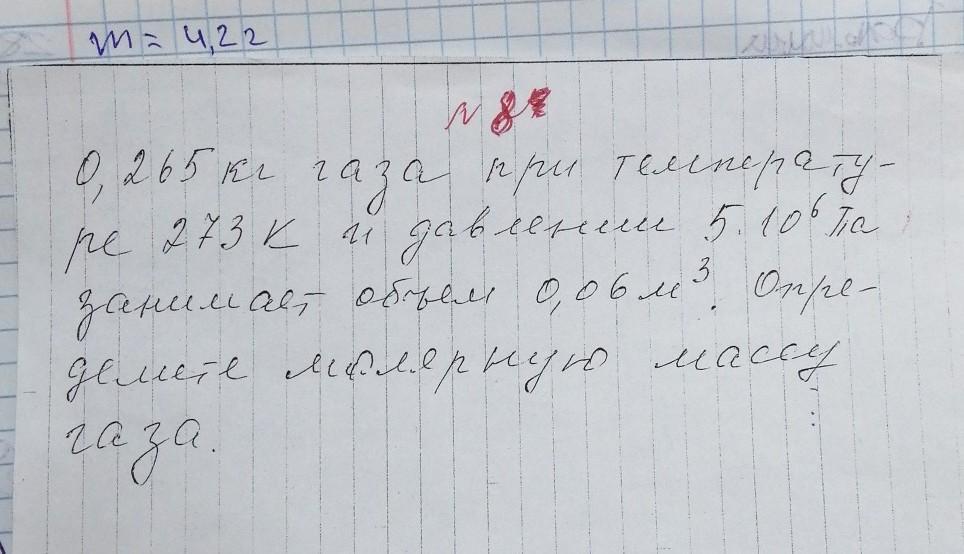 m = 4,2г
№ 8
0,265 кг газа при температу-
ре 273 К и давлении 5.10⁶ Па
занимает объем 0,06 м³. Опре-
делите молярную массу
газа.